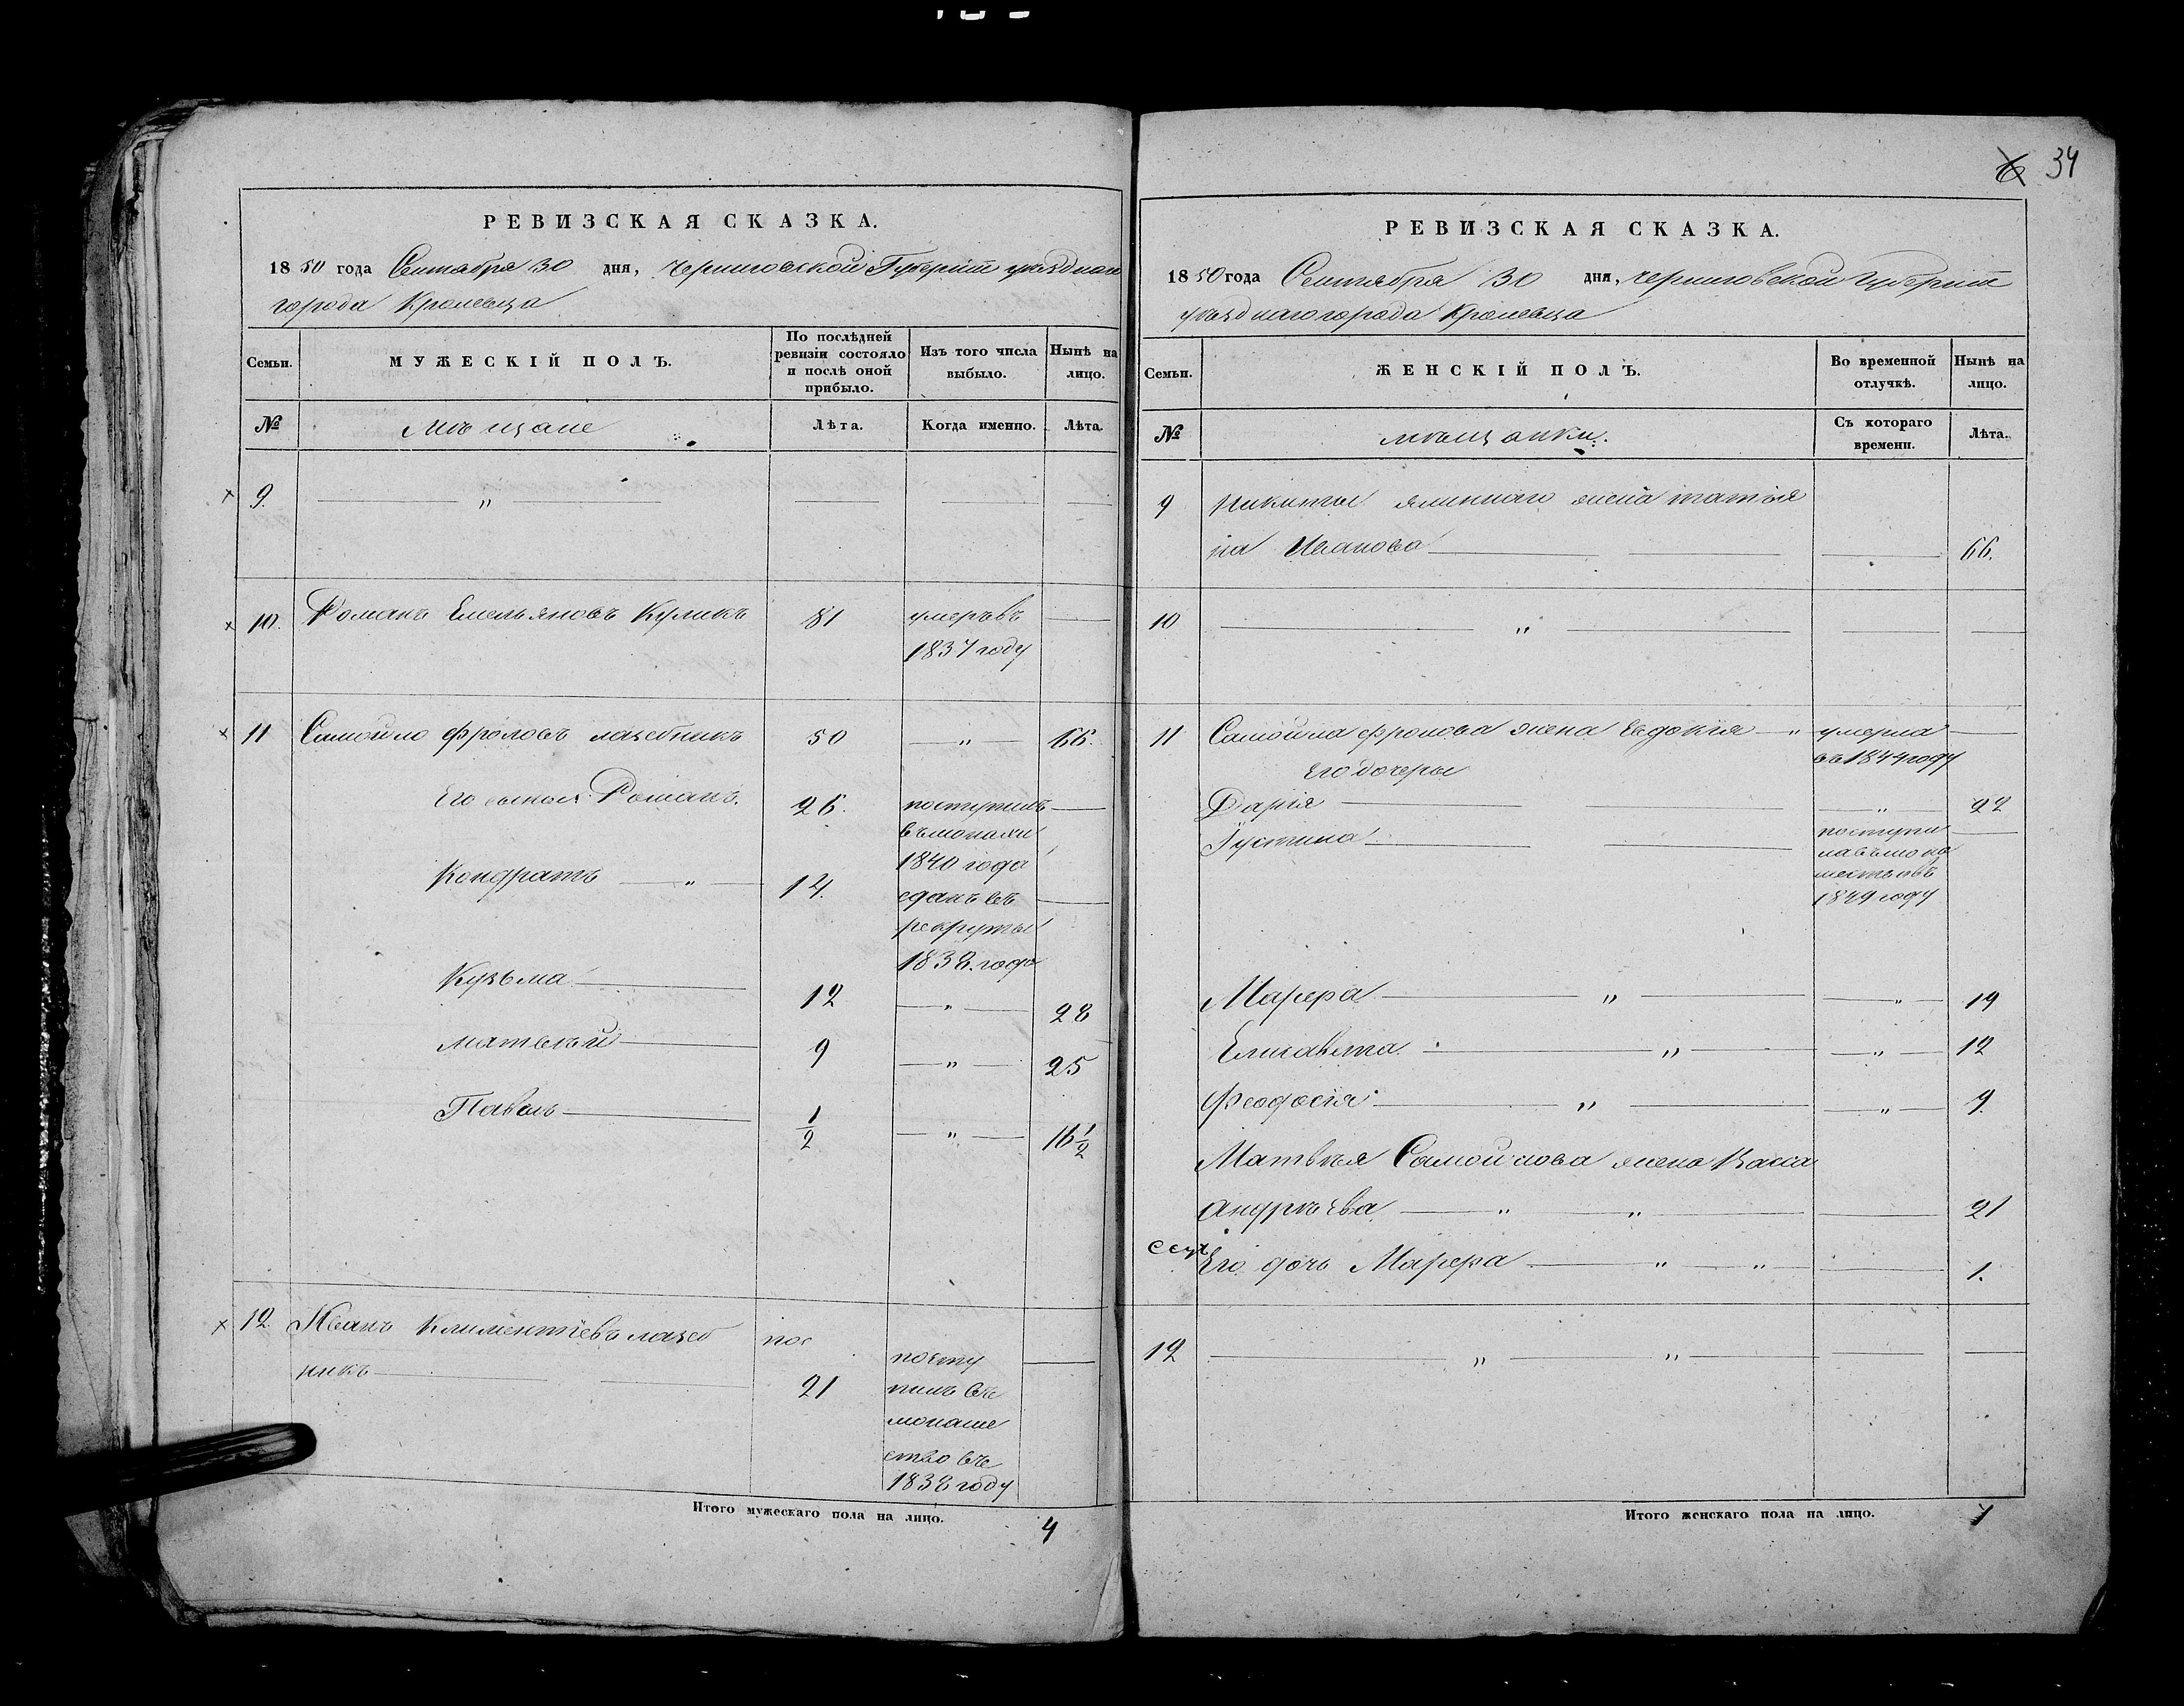 34
РЕВИЗСКАЯ СКАЗКА.
1850 года Сентября 30 дня, Черниговской Губерніи уѣзднаго
города Кролевца
Семьи.
МУЖЕСКІЙ ПОЛЪ.
По послѣдней ревизіи состояло и послѣ оной прибыло.
Изъ того числа выбыло.
Нынѣ на лицо.
№ Мѣщане Лѣта. Когда именно. Лѣта.
9. "
10. Романъ Емельяновъ Куликъ 81 умеръ въ
1837 году
11 Самойло Фроловъ лазебникъ 50 " 66.
Его сыновья Романъ. 26. поступилъ
въ монахи
1840 года
Кондратъ " 14. сданъ въ
рекруты
1838. года
Кузьма 12 " 28
Матвѣй 9 " 25
Павелъ 1/2 " 16 1/2
12. Иванъ Климентіевъ лазеб пос
никъ 21 посту
пилъ въ
монаше
ство въ
1838 году
Итого мужескаго пола на лицо. 4
РЕВИЗСКАЯ СКАЗКА.
1850 года Сентября 30 дня, Черниговской Губерніи
уѣзднаго города Кролевца
Семьи.
ЖЕНСКІЙ ПОЛЪ.
Во временной отлучкѣ.
Нынѣ на лицо.
№ мѣщанки. Съ котораго времени. Лѣта.
9 Никиты жена татья
на Иванова 66.
10 "
11 Самойла Фролова жена Евдокія " умерла
въ 1844 году
Его дочеры
Дарія " 22
Іустина поступи
ла въ мона
шество въ
1849 году
Марфа " " 19
Елисавета " " 12
Феодосія " " 9.
Матвѣя Самойлова жена Васса
Андрѣева " " 21
Его дочь Марфа " " 1.
12 " "
Итого женскаго пола на лицо. 7